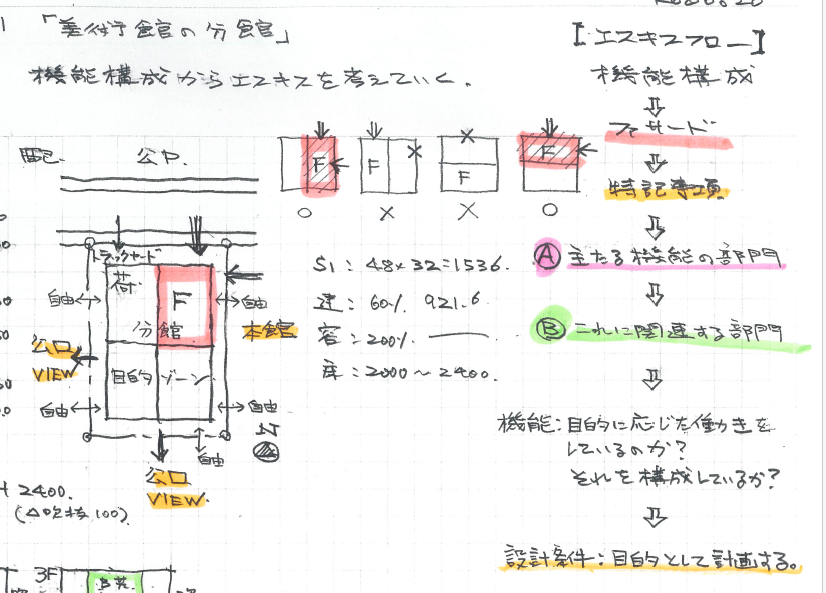 「美術館の分館」
機能構成からエスキスを考えていく.
配.
公ロ.
トラックヤード
荷
F
分館
目的ゾーン
自由
自由
自由
自由
自由
本館
公口
VIEW
公口
VIEW.
2400.
(△吹抜100)
3F
F
F
F
F
○
×
×
○
×
×
S1: 48×32=1536.
建: 60% 921.6
容: 200%.
床: 2000~2400.
【エスキスフロー】
機能構成
⇩
ファサード
⇩
特記事項.
⇩
Ⓐ 主たる機能の部門
⇩
Ⓑ これに関連する部門
⇩
機能:目的に応じた働きを
しているのか?
それを構成しているか?
⇩
設計条件:目的として計画する。